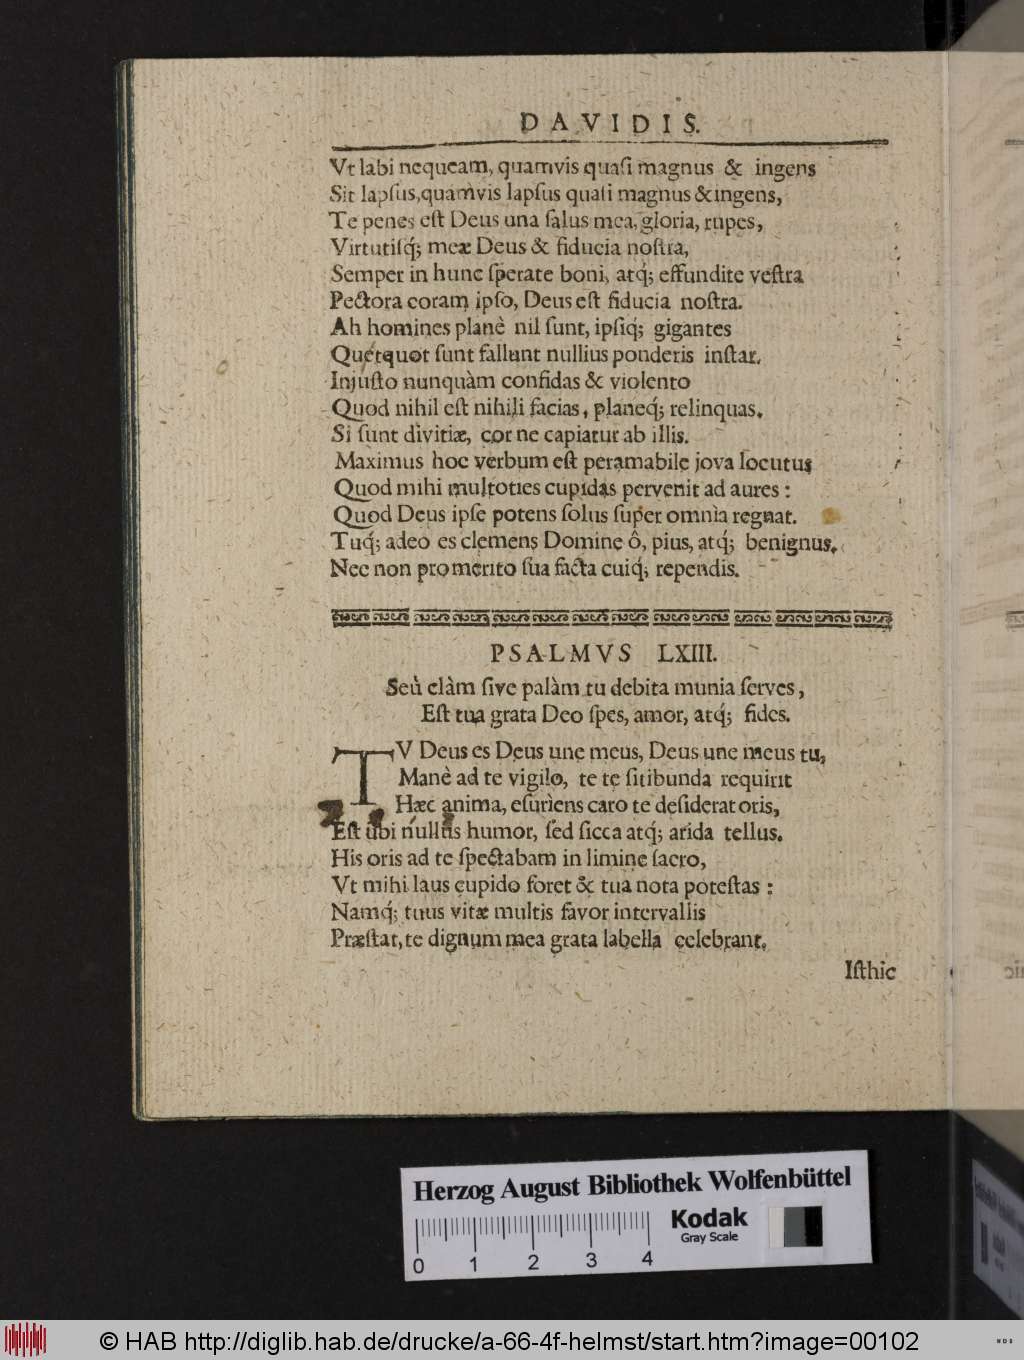 DAVIDIS.
Vt labi nequeam, quamvis quaſi magnus & ingens
Sit lapſus, quamvis lapſus quaſi magnus & ingens,
Te penes eſt Deus una ſalus mea, gloria, rupes,
Virtutiſq́; meæ Deus & fiducia noſtra,
Semper in hunc ſperate boni, atq́; effundite veſtra
Pectora coram ipſo, Deus eſt fiducia noſtra.
Ah homines planè nil ſunt, ipſiq́; gigantes
Quotquot ſunt fallunt nullius ponderis inſtar.
Injuſto nunquàm confidas & violento
Quod nihil eſt nihili facias, planeq́; relinquas.
Si ſunt divitiæ, cor ne capiatur ab illis.
Maximus hoc verbum eſt peramabile jova locutus
Quod mihi multoties cupidas pervenit ad aures:
Quod Deus ipſe potens ſolus ſuper omnia regnat.
Tuq́; adeo es clemens Domine ô, pius, atq́; benignus.
Nec non pro merito ſua facta cuiq́; rependis.
PSALMVS LXIII.
Seù clàm ſive palàm tu debita munia ſerves,
Eſt tua grata Deo ſpes, amor, atq́; fides.
TV Deus es Deus une meus, Deus une meus tu,
Manè ad te vigilo, te te ſitibunda requirit
Hæc anima, eſuriens caro te deſiderat oris,
Eſt ubi nullus humor, ſed ſicca atq́; arida tellus.
His oris ad te ſpectabam in limine ſacro,
Vt mihi laus cupido foret & tua nota poteſtas:
Namq́; tuus vitæ multis favor intervallis
Præſtat, te dignum mea grata labella celebrant.
Iſthic
Herzog August Bibliothek Wolfenbüttel
Kodak
Gray Scale
0 1 2 3 4
© HAB http://diglib.hab.de/drucke/a-66-4f-helmst/start.htm?image=00102